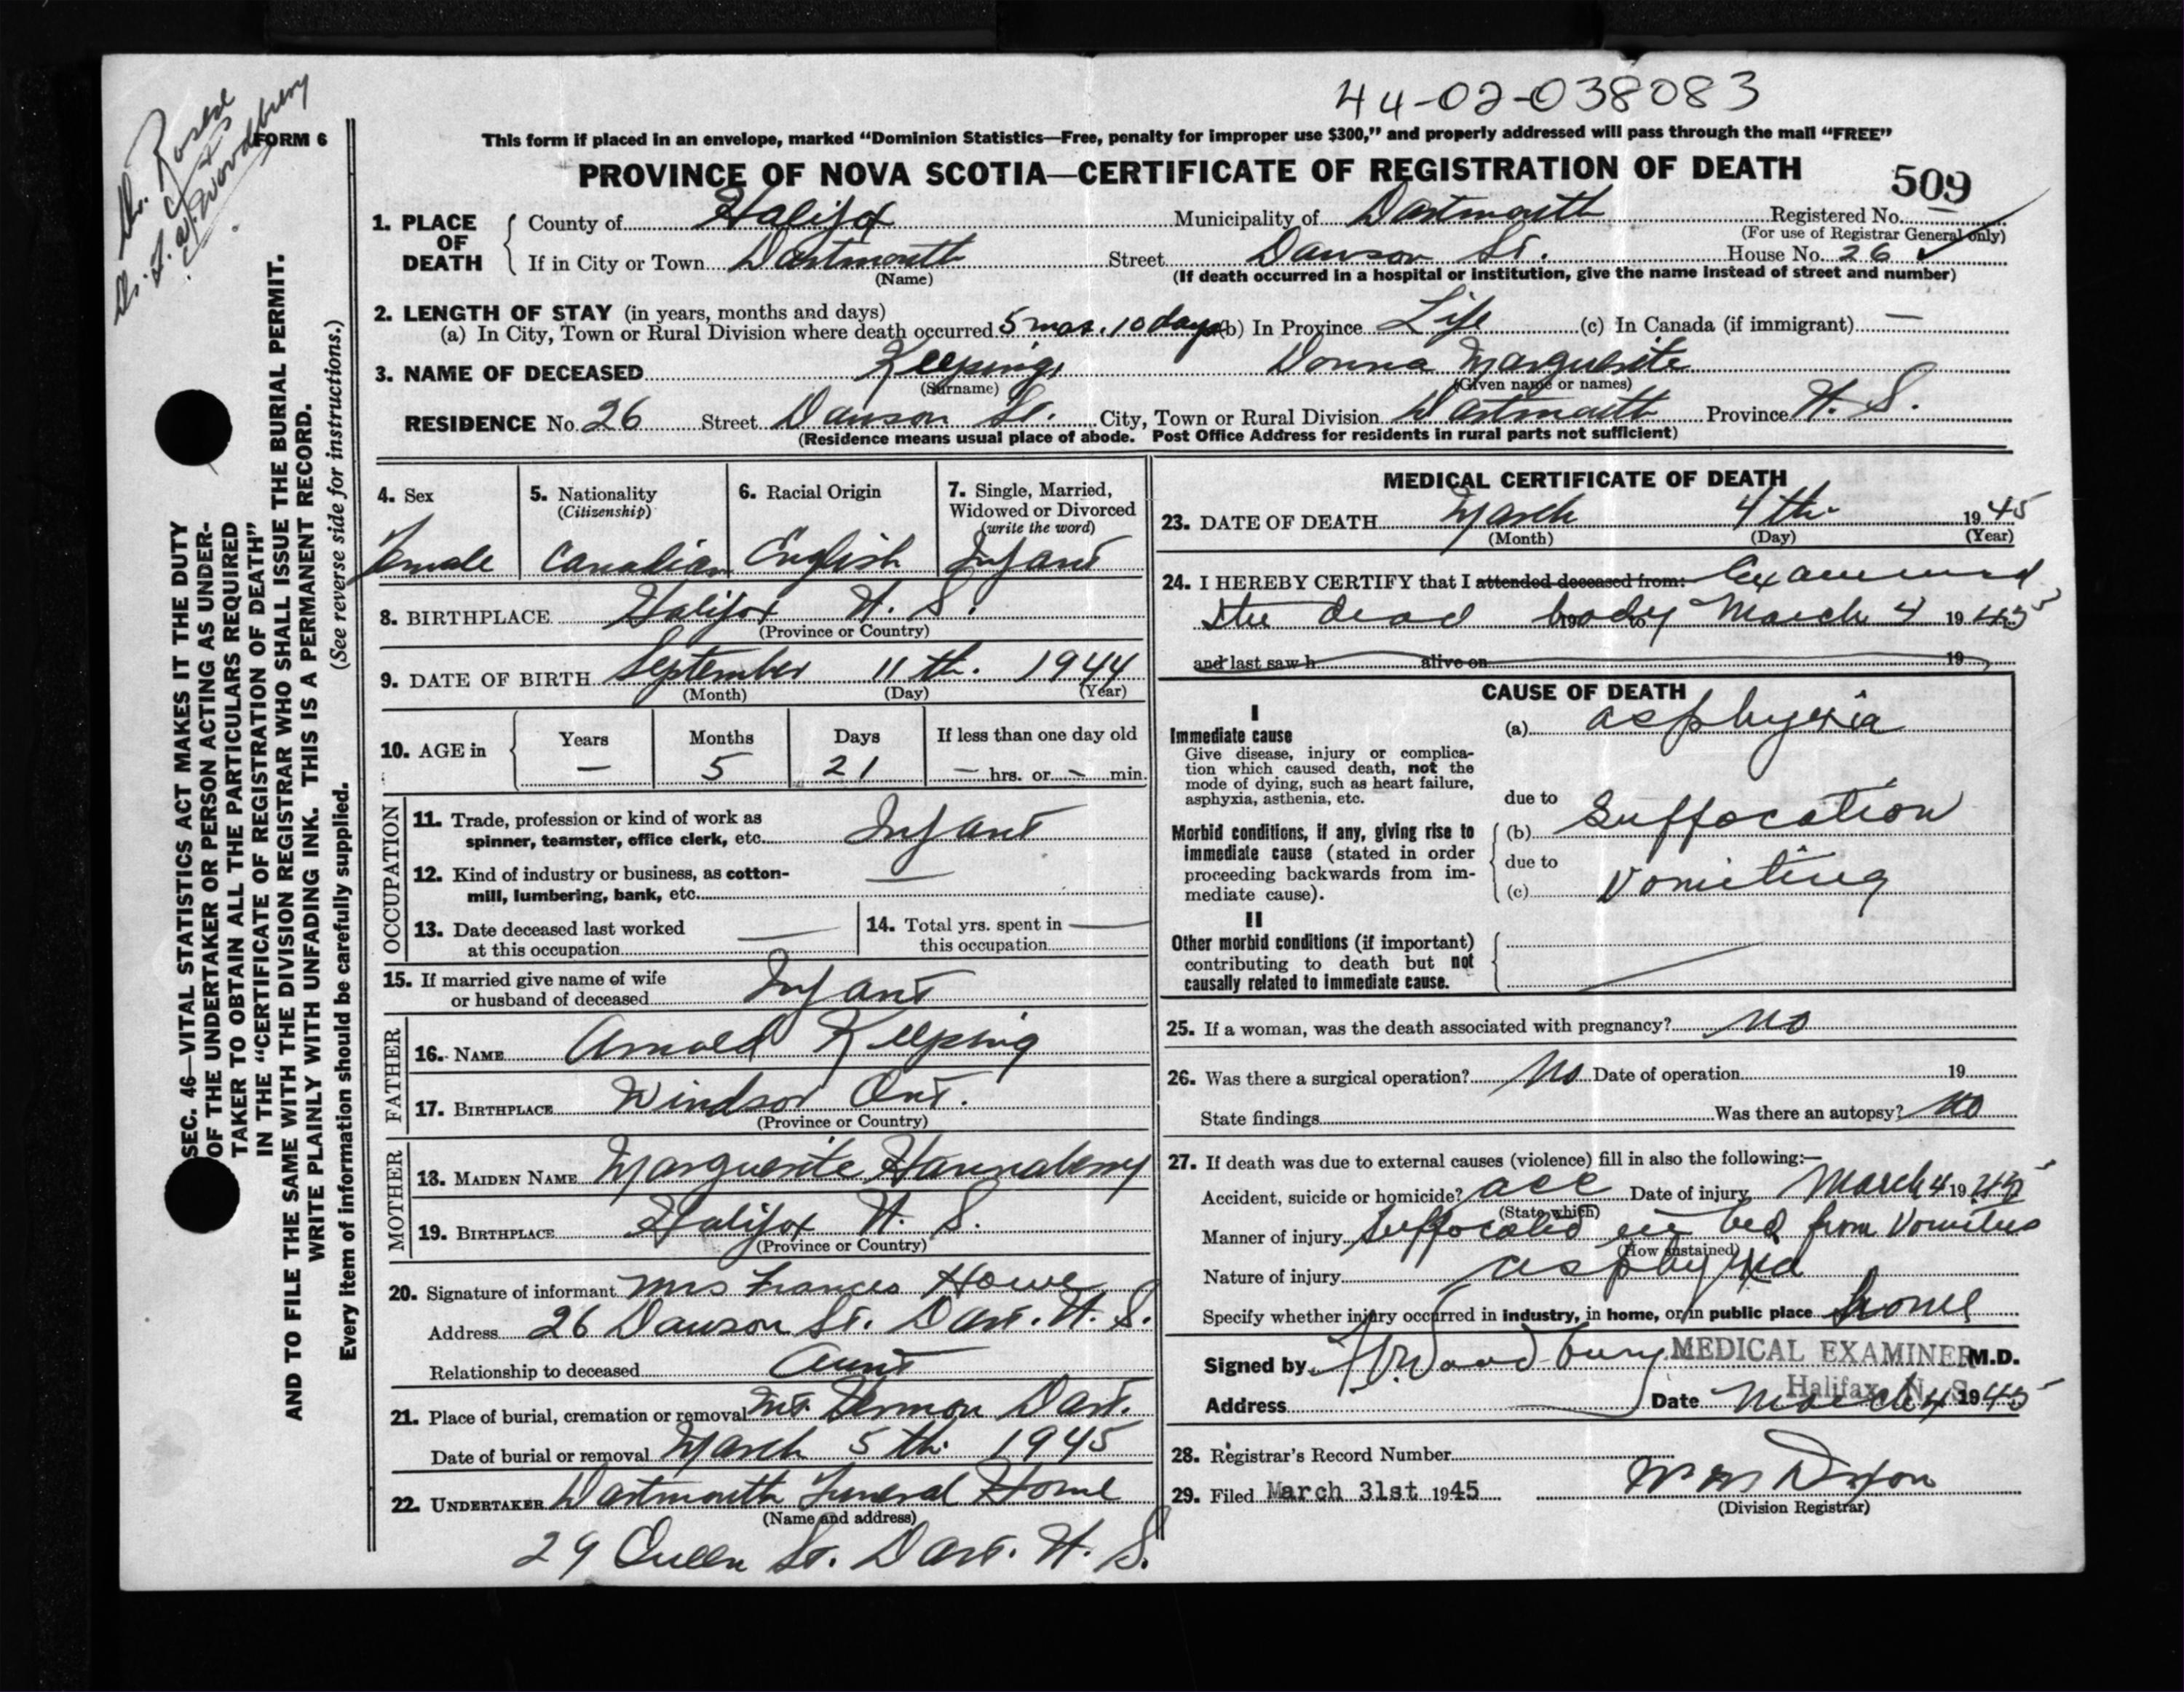 44-02-038083
FORM 6
This form if placed in an envelope, marked "Dominion Statistics—Free, penalty for improper use $300," and properly addressed will pass through the mail "FREE"
PROVINCE OF NOVA SCOTIA—CERTIFICATE OF REGISTRATION OF DEATH
509
1. PLACE OF DEATH { County of Halifax Municipality of Dartmouth Registered No.
(For use of Registrar General only)
If in City or Town Dartmouth Street Dawson St. House No. 26 ✓
(Name) (If death occurred in a hospital or institution, give the name instead of street and number)
2. LENGTH OF STAY (in years, months and days)
(a) In City, Town or Rural Division where death occurred 5 mos. 10 days (b) In Province Life (c) In Canada (if immigrant) —
3. NAME OF DECEASED Keeping, Donna Marguerite
(Surname) (Given name or names)
RESIDENCE No. 26 Street Dawson St. City, Town or Rural Division Dartmouth Province N. S.
(Residence means usual place of abode. Post Office Address for residents in rural parts not sufficient)
4. Sex 5. Nationality 6. Racial Origin 7. Single, Married,
(Citizenship) Widowed or Divorced
(write the word)
Female Canadian English Infant
8. BIRTHPLACE Halifax N. S.
(Province or Country)
9. DATE OF BIRTH September 11th. 1944
(Month) (Day) (Year)
10. AGE in { Years Months Days If less than one day old
— 5 21 — hrs. or — min.
OCCUPATION
11. Trade, profession or kind of work as
spinner, teamster, office clerk, etc. Infant
12. Kind of industry or business, as cotton-
mill, lumbering, bank, etc. —
13. Date deceased last worked — 14. Total yrs. spent in —
at this occupation this occupation
15. If married give name of wife
or husband of deceased Infant
FATHER
16. NAME Arnold Keeping
17. BIRTHPLACE Windsor Ont.
(Province or Country)
MOTHER
18. MAIDEN NAME Marguerite Hannaberry
19. BIRTHPLACE Halifax N. S.
(Province or Country)
20. Signature of informant Mrs Frances Howe
Address 26 Dawson St. Dart. N. S.
Relationship to deceased Aunt
21. Place of burial, cremation or removal Mt. Hermon Dart.
Date of burial or removal March 5th. 1945
22. UNDERTAKER Dartmouth Funeral Home
(Name and address)
29 Queen St. Dart. N. S.
MEDICAL CERTIFICATE OF DEATH
23. DATE OF DEATH March 4th. 1945
(Month) (Day) (Year)
24. I HEREBY CERTIFY that I attended deceased from: Examined
the dead body March 4 1945
and last saw h alive on 19
CAUSE OF DEATH
I
Immediate cause (a) asphyxia
Give disease, injury or complica-
tion which caused death, not the
mode of dying, such as heart failure,
asphyxia, asthenia, etc.
due to
Morbid conditions, if any, giving rise to (b) Suffocation
immediate cause (stated in order
due to
proceeding backwards from im-
mediate cause). (c) Vomiting
II
Other morbid conditions (if important)
contributing to death but not
causally related to immediate cause.
25. If a woman, was the death associated with pregnancy? no
26. Was there a surgical operation? No Date of operation 19
State findings Was there an autopsy? No
27. If death was due to external causes (violence) fill in also the following:—
Accident, suicide or homicide? acc Date of injury March 4 1945
(State which)
Manner of injury Suffocated in bed from Vomitus
(How sustained)
Nature of injury asphyxia
Specify whether injury occurred in industry, in home, or in public place home
Signed by Woodbury MEDICAL EXAMINER M.D.
Halifax, N. S.
Address Date March 4 1945
28. Registrar's Record Number
29. Filed March 31st 1945 Dixon
(Division Registrar)
SEC. 46—VITAL STATISTICS ACT MAKES IT THE DUTY
OF THE UNDERTAKER OR PERSON ACTING AS UNDER-
TAKER TO OBTAIN ALL THE PARTICULARS REQUIRED
IN THE "CERTIFICATE OF REGISTRATION OF DEATH"
AND TO FILE THE SAME WITH THE DIVISION REGISTRAR WHO SHALL ISSUE THE BURIAL PERMIT.
WRITE PLAINLY WITH UNFADING INK. THIS IS A PERMANENT RECORD.
Every item of information should be carefully supplied. (See reverse side for instructions.)
Woodbury